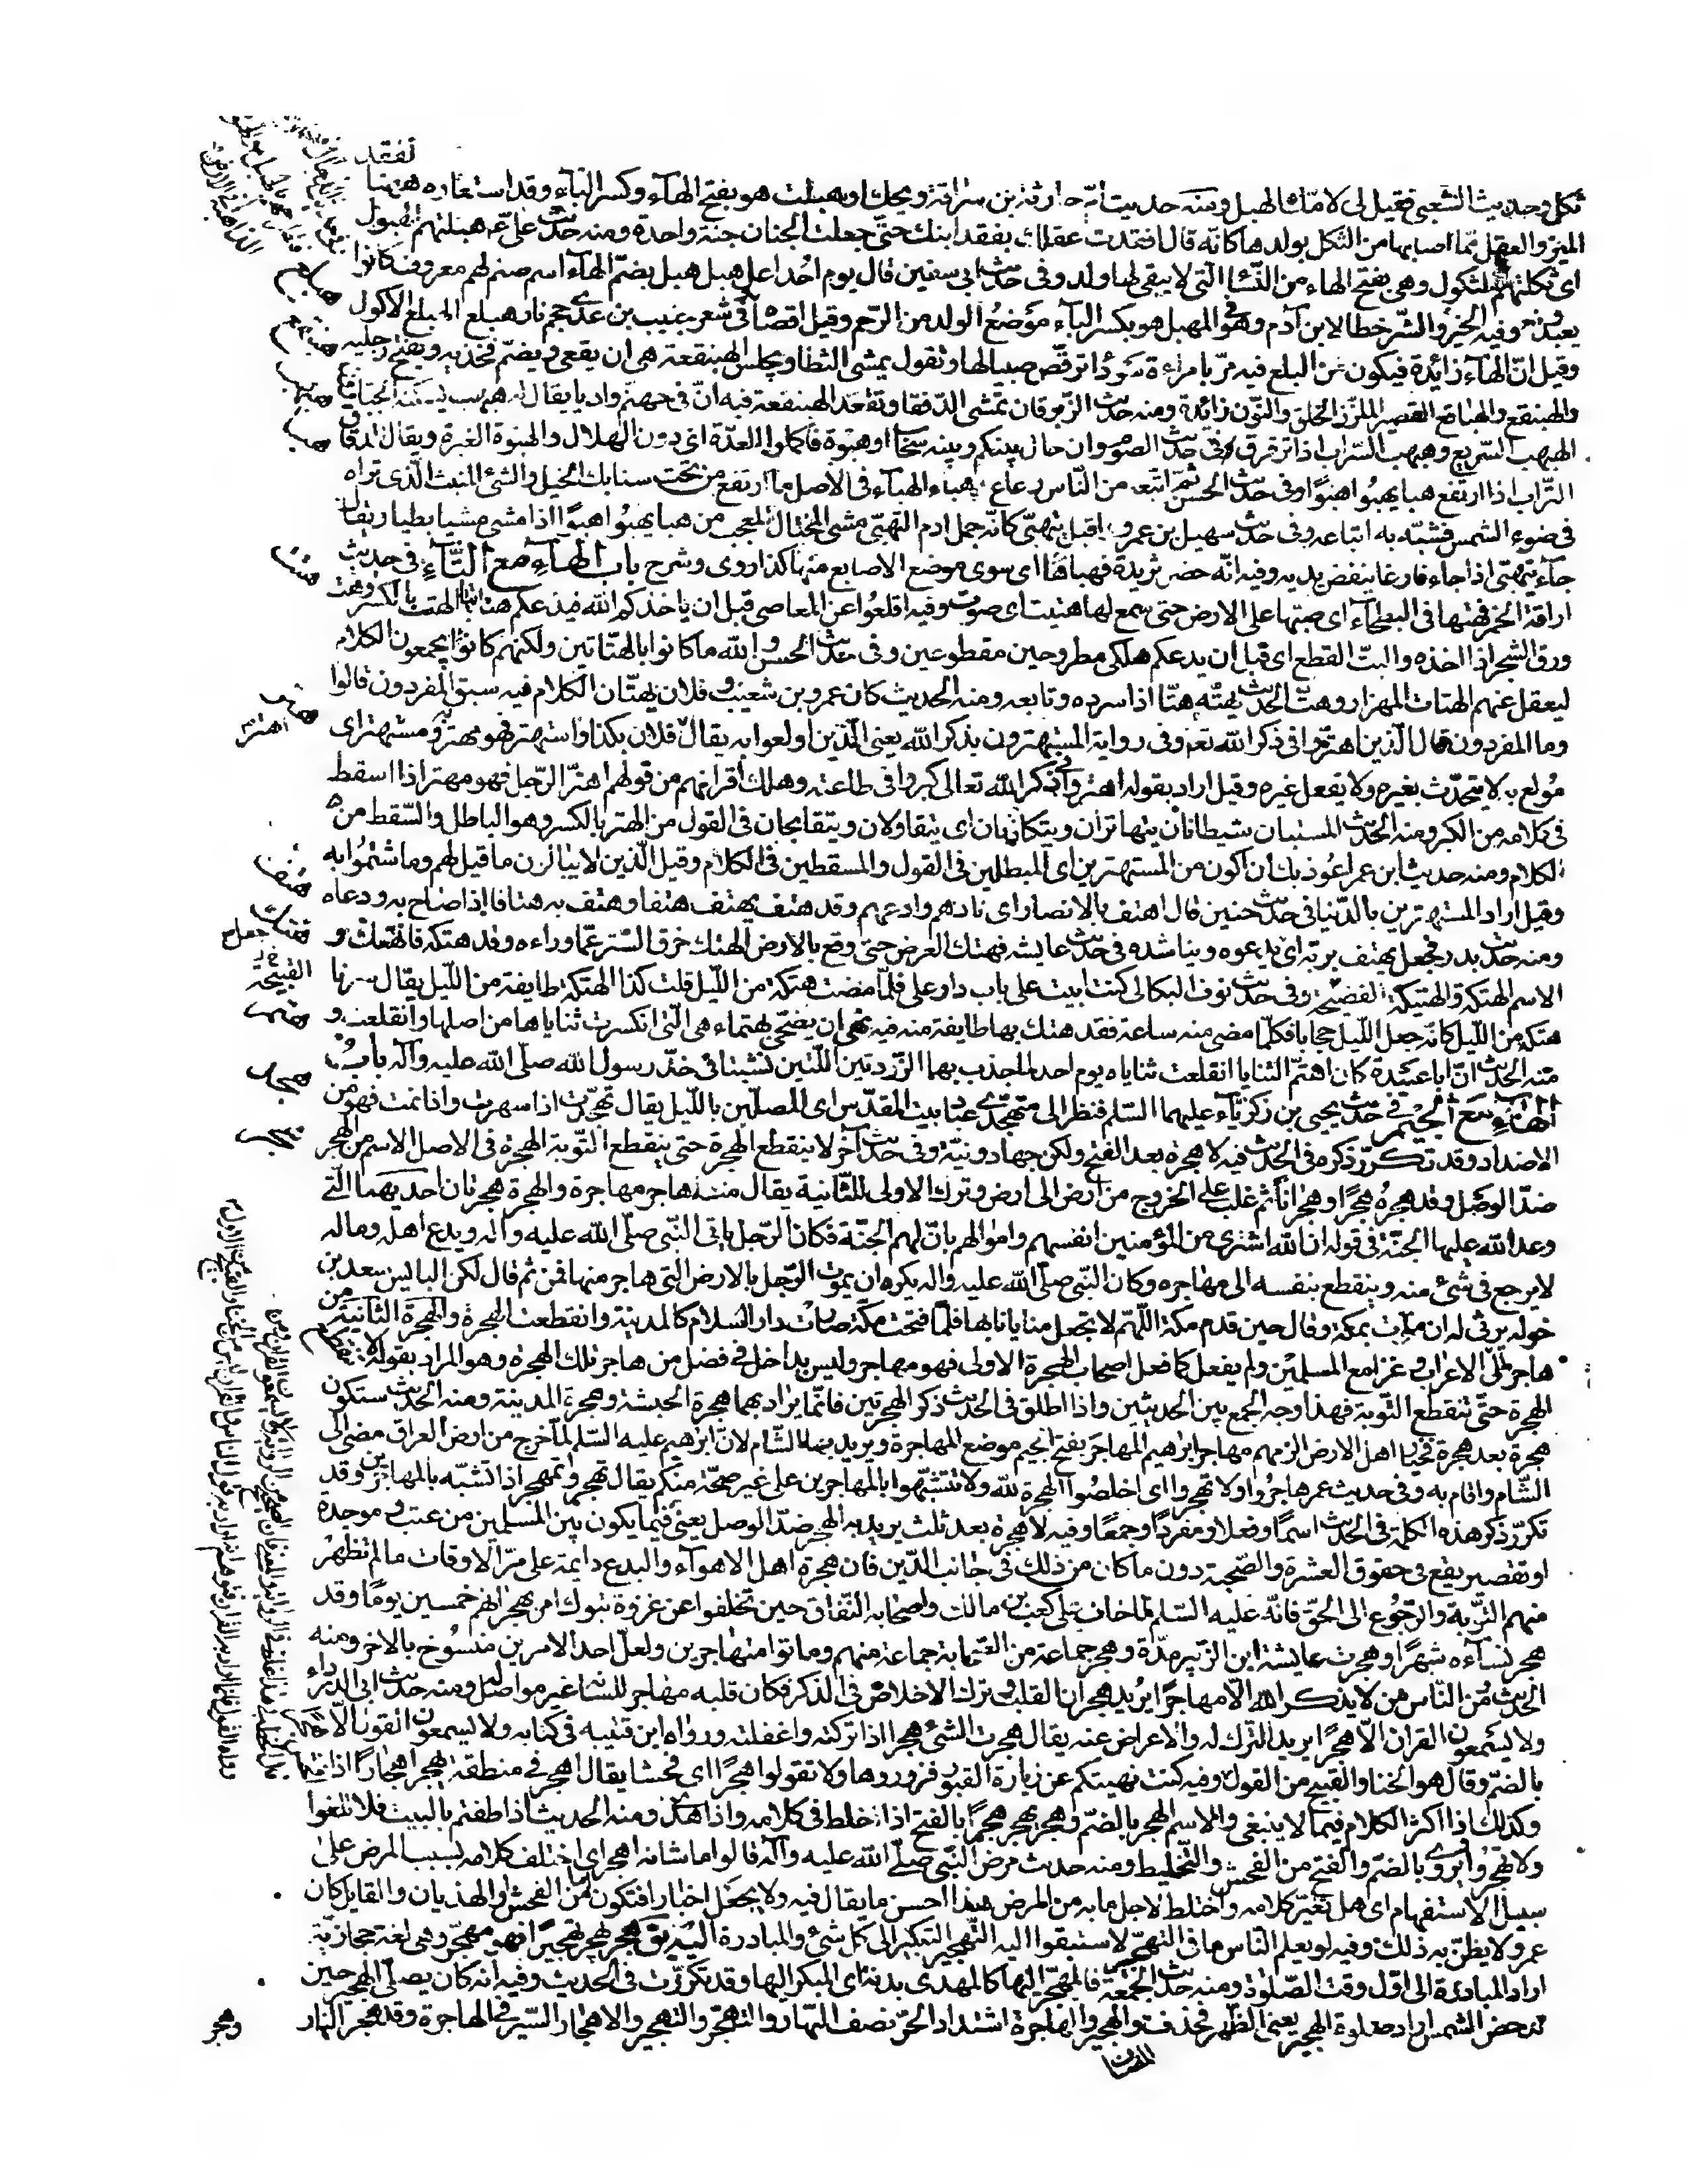 ثكل وحديث الشعبي فقيل لي لامّك الهبل ومنه حديث امّ حارثة بن سراقة ويحك اوهبلت هو بفتح الهاء وكسر الباء وقد استعاره ههنا لفقد
الميز والعقل ممّا اصابها من الثكل بولدها كانّه قال افقدت عقلك بفقد ابنك حتى جعلت الجنان جنة واحدة ومنه حديث علي هبلتهم الهبول
اي ثكلتهم الثكول وهي بفتح الهاء من النساء التي لا يبقى لها ولد وفي حديث ابي سفين قال يوم احد اعل هبل هبل بضمّ الهاء اسم صنم لهم معروف كانوا
يعبدونه وفيه الخير والشر خطا لابن آدم وهو في المهبل هو بكسر الباء موضع الولد من الرحم وقيل اقصاه في شعر خبيب بن عدي جحم نار هبلع الهبلع الاكول
وقيل انّ الهاء زائدة فيكون من البلع فيه مرّ بامراءة سوداء ترقّص صبيا لها وتقول يمشي الثطا ويجلس الهبنقعة هي ان يقعي ويضمّ فخذيه ويفتح رجليه
والهبنقع والهباقع القصير الملزّز الخلق والنون زائدة ومنه حديث الزبرقان تمشي الدفقا وتقعد الهبنقعة فيه انّ في جهنم واديا يقال له هبهب يسكنه الجبّارون
الهبهب السريع وهبهب السراب اذا ترقرق وفي حديث الصوم وان حال بينكم وبينه سحاب او هبوة فاكملوا العدّة اي دون الهلال والهبوة الغبرة ويقال لدقاق
التراب اذا ارتفع هبا يهبو اهبوا وفي حديث الحسن ثم اتبعه من الناس رعاع هباء الهباء في الاصل ما ارتفع من تحت سنابك الخيل والشيء المنبث الذي تراه
في ضوء الشمس فشبّه به اتباعه وفي حديث سهيل بن عمرو اقبل يتهبّى كانّه جمل ادم التهبّي مشي المختال المعجب من هبا يهبو اهبوا اذا مشى مشيا بطيا ويقال
جاء يتهبّى اذا جاء فارغا ينفض يديه وفيه انّه حضر ثريدة فهباها اي سوى موضع الاصابع منها كذا روي وشرح باب الهاء مع التاء في حديث
اراقة الخمر فهتّها في البطحاء اي صبّها على الارض حتى سمع لها هتيت اي صوت وفيه اقلعوا عن المعاصي قبل ان ياخذكم الله فيدعكم هتا بتا الهتّ الكسر وهت
ورق الشجر اذا اخذه والبتّ القطع اي قبل ان يدعكم هلكى مطروحين مقطوعين وفي حديث الحسن والله ما كانوا بالهتاتين ولكنهم كانوا يجمعون الكلام
ليعقل عنهم الهتات المهزار وهتّ الحديث يهتّه هتّا اذا سرده وتابعه ومنه الحديث كان عمرو بن شعيب وفلان يهتّان الكلام فيه سبق المفردون قالوا
وما المفردون قال الذين اهتروا في ذكر الله وفي رواية المستهترون بذكر الله يعني الذين اولعوا به يقال فلان بكذا واستهتر فهو مهتر ومستهتر اي
مولع به لا يتحدّث بغيره ولا يفعل غيره وقيل اراد بقوله اهتروا في ذكر الله تعالى كبروا في طاعته وهلك اقرانهم من قولهم اهتر الرجل فهو مهتر اذا اسقط
في كلامه من الكبر ومنه الحديث المستبان شيطانان يتهاتران ويتكاذبان اي يتقاولان ويتقابحان في القول من الهتر بالكسر وهو الباطل والسقط من
الكلام ومنه حديث ابن عمر اعوذ بك ان اكون من المستهترين اي المبطلين في القول والمسقطين في الكلام وقيل الذين لا يبالون ما قيل لهم وما شتموا به
وقيل اراد المستهترين بالدنيا في حديث حنين قال اهتف بالانصار اي نادهم وادعهم وقد هتف يهتف هتفا وهتف به هتافا اذا صاح به ودعاه
ومنه حديث بدر فجعل يهتف بربّه اي يدعوه ويناشده في حديث عايشه فهتك العرض حتى وقع بالارض الهتك خرق الستر عمّا وراءه وقد هتكه فانهتك و
الاسم الهتكة والهتيكة الفضيحة وفي حديث نوف البكالي كنت ابيت على باب دار علي فلمّا مضت هتكة من الليل قلت كذا الهتكة طايفة من الليل يقال سرنا
هتكة من الليل كانّه جعل الليل حجابا فكلّما مضى منه ساعة فقد هتك بها طايفة منه فيه نهى ان يضحّى بهتماء هي التي انكسرت ثناياها من اصلها وانقلعت و
منه الحديث انّ ابا عبيدة كان اهتم الثنايا انقلعت ثناياه يوم احد لما جذب بهما الزردتين اللتين نشبتا في خدّ رسول الله صلّى الله عليه وآله باب
الهاء مع الجيم في حديث يحيى بن زكرياء عليهما السلم فنظر الى متهجّدي عبّاد بيت المقدس اي المصلّين بالليل يقال تهجّدت اذا سهرت واذا نمت فهو من
الاضداد وقد تكرر ذكره في الحديث فيه لا هجرة بعد الفتح ولكن جهاد ونيّة وفي حديث آخر لا ينقطع الهجرة حتى ينقطع التوبة الهجرة في الاصل الاسم من الهجر
ضدّ الوصل وقد هجره هجرا وهجرانا ثم غلب على الخروج من ارض الى ارض وترك الاولى للثانية يقال منه هاجر مهاجرة والهجرة هجرتان احديهما التي
وعد الله عليها الجنّة في قوله ان الله اشترى من المؤمنين انفسهم واموالهم بانّ لهم الجنّة فكان الرجل ياتي النبي صلّى الله عليه وآله ويدع اهله وماله
لا يرجع في شيء منه وينقطع بنفسه الى مهاجره وكان النبي صلّى الله عليه واله يكره ان يموت الرجل بالارض التي هاجر منها فمن ثم قال لكن البايس سعد بن
خولة يرثي له ان مات بمكة وقال حين قدم مكة اللّهم لا تجعل منايانا بها فلمّا فتحت مكة صارت دار السلام كالمدينة وانقطعت الهجرة والهجرة الثانية من
هاجر من الاعراب وغزا مع المسلمين ولم يفعل كما فعل اصحاب الهجرة الاولى فهو مهاجر وليس بداخل في فضل من هاجر تلك الهجرة وهو المراد بقوله لا تنقطع
الهجرة حتى تنقطع التوبة فهذا وجه الجمع بين الحديثين واذا اطلق في الحديث ذكر الهجرتين فانّما يراد بهما هجرة الحبشة وهجرة المدينة ومنه الحديث ستكون
هجرة بعد هجرة فخيار اهل الارض الزمهم مهاجر ابراهيم المهاجر بفتح الجيم موضع المهاجرة ويريد به الشام لانّ ابراهيم عليه السلم لمّا خرج من ارض العراق مضى الى
الشام واقام به وفي حديث عمر هاجروا ولا تهجّروا اي اخلصوا الهجرة لله ولا تتشبّهوا بالمهاجرين على غير صحّة منكم يقال تهجّر وتمهجر اذا تشبّه بالمهاجرين وقد
تكرر ذكر هذه الكلمة في الحديث اسما وفعلا ومفردا وجمعا وفيه لا هجرة بعد ثلث يريد به الهجر ضدّ الوصل يعني فيما يكون بين المسلمين من عتب وموجدة
او تقصير يقع في حقوق العشرة والصحبة دون ما كان من ذلك في جانب الدين فان هجرة اهل الاهواء والبدع دايمة على مرّ الاوقات ما لم تظهر
منهم التوبة والرجوع الى الحق فانّه عليه السلم لمّا خاف على كعب بن مالك واصحابه النفاق حين تخلفوا عن غزوة تبوك امر بهجرانهم خمسين يوما وقد
هجر نساءه شهرا وهجرت عايشة ابن الزبير مدّة وهجر جماعة من الصحابة جماعة منهم وماتوا متهاجرين ولعلّ احد الامرين منسوخ بالاخر ومنه
الحديث من الناس من لا يذكر الله الّا مهاجرا يريد هجران القلب وترك الاخلاص في الذكر فكان قلبه مهاجر للسانه غير مواصل له ومنه حديث ابي الدرداء
ولا يسمعون القران الّا هجرا يريد الترك له والاعراض عنه يقال هجرت الشيء هجرا اذا تركته واغفلته ورواه ابن قتيبه في كتابه ولا يسمعون القول الّا هجرا
بالضمّ وقال هو الخنا والقبيح من القول وفيه كنت نهيتكم عن زيارة القبور فزوروها ولا تقولوا هجرا اي فحشا يقال اهجر في منطقه يهجر اهجارا اذا فحش
وكذلك اذا اكثر الكلام فيما لا ينبغي والاسم الهجر بالضمّ وهجر يهجر هجرا بالفتح اذا خلط في كلامه واذا هذى ومنه الحديث اذا طفتم بالبيت فلا تلغوا
ولا تهجروا يروى بالضمّ والفتح من الفحش والتخليط ومنه حديث مرض النبي صلّى الله عليه وآله قالوا ما شانه اهجر اي اختلف كلامه بسبب المرض على
سبيل الاستفهام اي هل تغيّر كلامه واختلط لاجل ما به من المرض هذا احسن ما يقال فيه ولا يجعل اخبارا فتكون من الفحش او الهذيان والقايل كان
عمر ولا يظنّ به ذلك وفيه لو يعلم الناس ما في التهجير لاستبقوا اليه التهجير التبكير الى كل شيء والمبادرة اليه يق هجر يهجر تهجيرا فهو مهجر وهي لغة حجازيّة
اراد المبادرة الى اوّل وقت الصلوة ومنه حديث الجمعة فالمهجّر اليها كالمهدي بدنة اي المبكر اليها وقد تكررت في الحديث وفيه انه كان يصلّي الهجير حين
تدحض الشمس اراد صلوة الهجير يعني الظهر فحذف المضاف والهجير والهاجرة اشتداد الحرّ نصف النهار والتهجّر والتهجير والاهجار السير في الهاجرة وقد هجر النهار
وهجر
هبلع
هبنقع
هبهب
هبا
هتت
هتر
اهتر
هتف
هتك
هتم
هجد
هجر